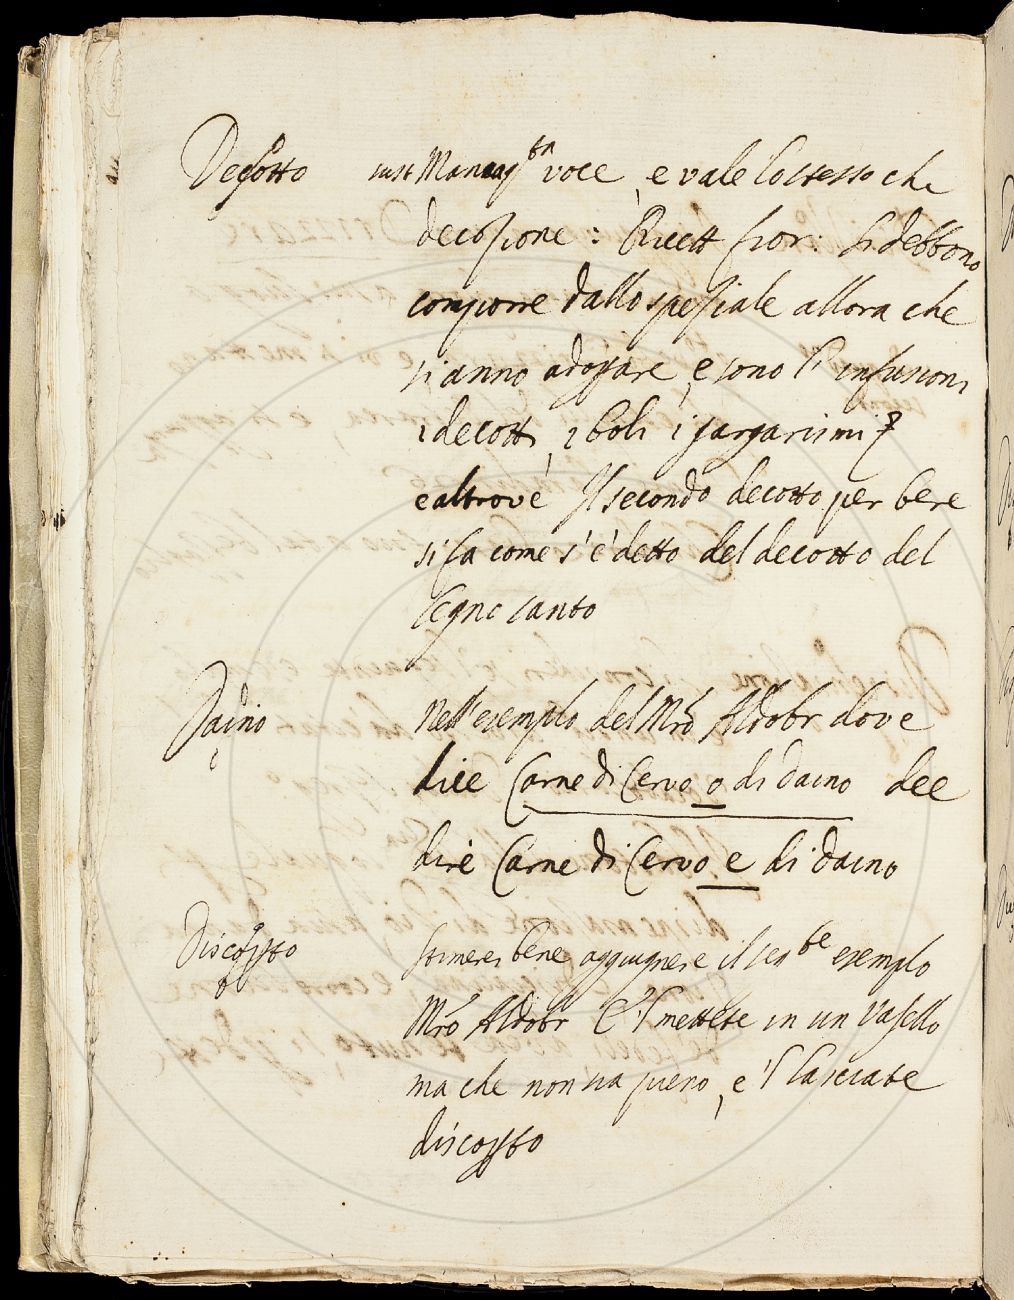 Decotto Manca q.ta voce, e vale lo stesso che
decozione: Ricett fior: si debbono
comporre dallo speziale allora che
si anno adoprare, e sono l'infusioni
i decotti, i boli i gargarismi
e altrove Il secondo decotto per bere
si fa come s'è detto del decotto del
legno santo
Daino Nell'esemplo del Mrō Aldobr dove
dice Carne di Cervo o di daino dee
dire Carne di Cervo e di daino
Discosto stimerei bene aggiugnere il seg.te esemplo
Mrō Aldobr E 'l mettete in un vasello
ma che non sia pieno, e 'l lasciate
discosto